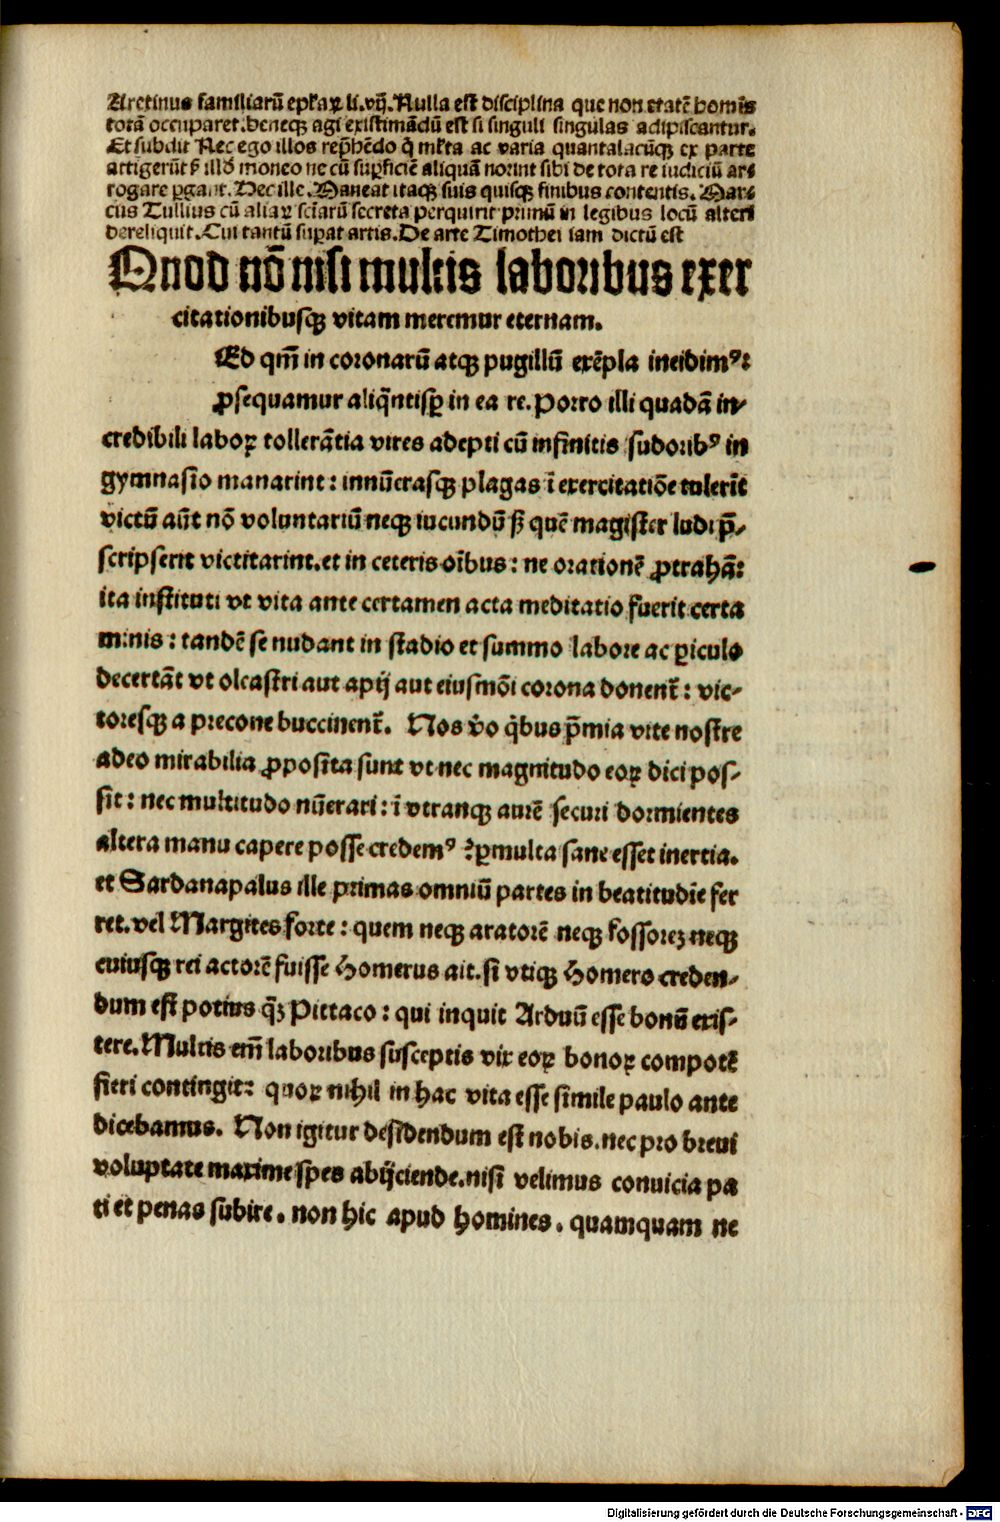 Aretinus familiarū epľaꝝ li.vij. Nulla est disciplina que non etatē homīs
totā occuparet. beneqꝫ agi existimādū est si singuli singulas adipiscantur.
Et subdit Nec ego illos rep̄hēdo q̄ ml̄ta ac varia quantalacūqꝫ ex parte
attigerūt illō moneo ne cū suꝑficiē aliquā norint sibi de tota re iudiciū ar-
rogare ꝑgant. Hec ille. Maneat itaqꝫ suis quisqꝫ finibus contentis. Mar-
cus Tullius cū aliaꝝ sciarū secreta perquirit primū in legibus locū alteri
dereliquit. Cui tantū suꝑat artis. De arte Timothei iam dictū est
Quod nō nisi multis laboribus exer
citationibusqꝫ vitam meremur eternam.
Ed qm̄ in coronarū atqꝫ pugillū exēpla incidimꝰ:
ꝓsequamur aliq̄ntisꝑ in ea re. Porro illi quadā in-
credibili laboꝝ tollerātia vires adepti cū infinitis sudoribꝰ in
gymnasio manarint: innūerasqꝫ plagas ī exercitatiōe tulerīt
victū aūt nō voluntariū neqꝫ iucundū sꝫ quē magister ludi p̄-
scripserit victitarint. et in ceteris oībus: ne orationē ꝓtrahā:
ita instituti vt vita ante certamen acta meditatio fuerit certa
minis: tandē se nudant in stadio et summo labore ac ꝑiculo
decertāt vt oleastri aut apij aut eiusmōi corona donenť: vic-
toresqꝫ a precone buccinenť. Nos v̄o q̄bus p̄mia vite nostre
adeo mirabilia ꝓposita sunt vt nec magnitudo eoꝝ dici pos-
sit: nec multitudo nūerari: ī vtranqꝫ aurē securi dormientes
altera manu capere posse credemꝰ? ꝑmulta sane esset inertia.
et Sardanapalus ille primas omniū partes in beatitudīe fer
ret. vel Margites forte: quem neqꝫ aratorē neqꝫ fossoreꝫ neqꝫ
cuiusqꝫ rei actorē fuisse Homerus ait. si vtiqꝫ Homero creden-
dum est potius q̄ꝫ Pittaco: qui inquit Arduū esse bonū exis-
tere. Multis em̄ laboribus susceptis vix eoꝝ bonoꝝ compotē
fieri contingit: quoꝝ nihil in hac vita esse simile paulo ante
dicebamus. Non igitur desidendum est nobis. nec pro breui
voluptate maxime spes abijciende. nisi velimus conuicia pa
ti et penas subire. non hic apud homines. quamquam ne
Digitalisierung gefördert durch die Deutsche Forschungsgemeinschaft - DFG